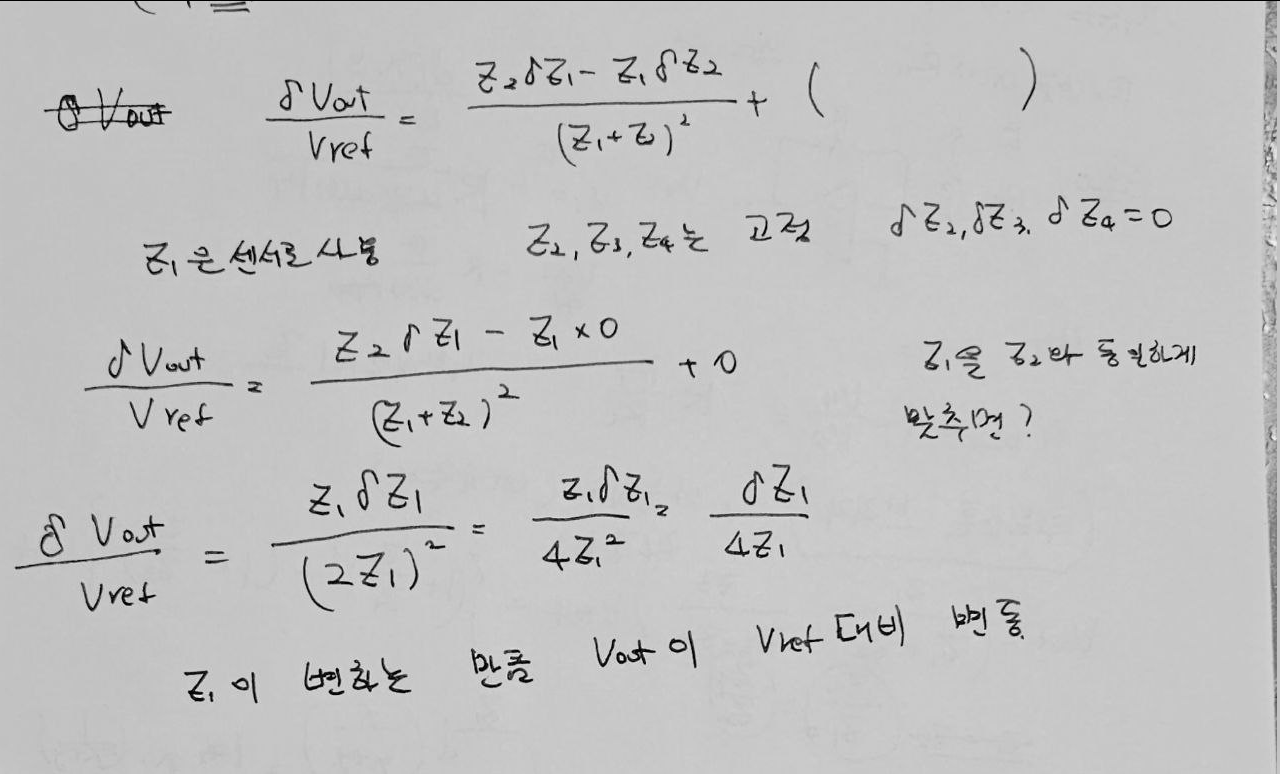 δVout/Vref = (Z₂δZ₁ - Z₁δZ₂)/(Z₁+Z₂)² + ( )
Z₁은 센서로 사용 Z₂, Z₃, Z₄는 고정 δZ₂, δZ₃, δZ₄ = 0
δVout/Vref = (Z₂δZ₁ - Z₁×0)/(Z₁+Z₂)² + 0 Z₁을 Z₂와 동일하게
맞추면?
δVout/Vref = Z₁δZ₁/(2Z₁)² = Z₁δZ₁/4Z₁² = δZ₁/4Z₁
Z₁이 변하는 만큼 Vout이 Vref 대비 변동